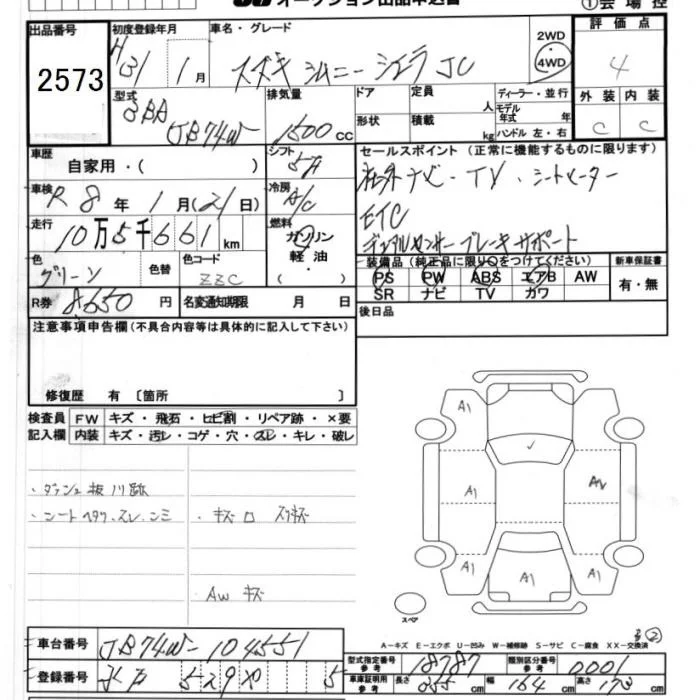 オークション出品申込書
①会場控
出品番号 初度登録年月 車名・グレード 2WD 評価点
2573 H31 1月 スズキ ジムニーシエラ JC 4WD 4
型式 排気量 ドア 定員 ディーラー・並行 外装 内装
3BA 人 モデル年式 年
JB74W 1500 CC 形状 積載 kg ハンドル 左・右 C C
車歴 シフト セールスポイント(正常に機能するものに限ります)
自家用・( ) 5A
車検 R8年 1月(21日) 冷房 A/C 社外ナビ・TV・シートヒーター
走行 10万5千661km 燃料 ガソリン・軽油・ ETC
デュアルセンサーブレーキサポート
色 グリーン 色替 色コード ZZC 装備品(純正品に限り○をつけてください) 新車保証書
PS PW ABS エアB AW 有・無
SR ナビ TV カワ
R券 8650円 名変通知期限 月 日 後日品
注意事項申告欄(不具合内容等は具体的に記入して下さい)
修復歴 有〔箇所 〕
検査員 FW キズ・飛石・ヒビ割・リペア跡・×要
記入欄 内装 キズ・汚レ・コゲ・穴・スレ・キレ・破レ
・ダッシュ板
・シートヘタリ、スレ、シミ ・キズ
・AW キズ
A1
✓
A1 A2
A1 A1 A1
スペア
②
A-キズ E-エクボ U-凹み W-補修跡 S-サビ C-腐食 XX-交換済
車台番号 JB74W-104551
型式指定番号 参考 18787 類別区分番号 参考 0001
登録番号 水戸 5 車庫証明用 参考 長さ 355cm 幅 164cm 高さ 173cm